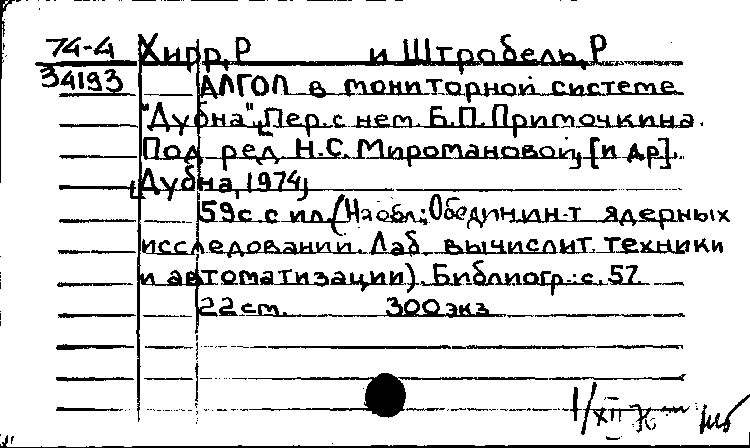 74-4 Хирр, Р и Штробель, Р
34193 АЛГОЛ в мониторной системе
"Дубна", Пер. с нем. Б.П. Примочкина.
Под ред. Н.С. Миромановой, [и др].
[Дубна, 1974]
59с. с ил. (На обл.: Обедин ин-т ядерных
исследовании. Лаб. вычислит. техники
и автоматизации). Библиогр.: с. 57.
22 см. 300 экз
1/XII 76